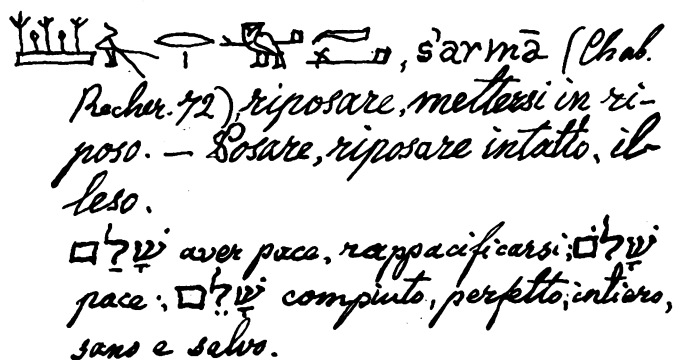 , s'armā (Chab.
Recher. 72), riposare, mettersi in ri-
poso. — Posare, riposare intatto, il-
leso.
שָׁלַם aver pace, rappacificarsi; שָׁלוֹם
pace; שָׁלֵם compiuto, perfetto; intiero,
sano e salvo.